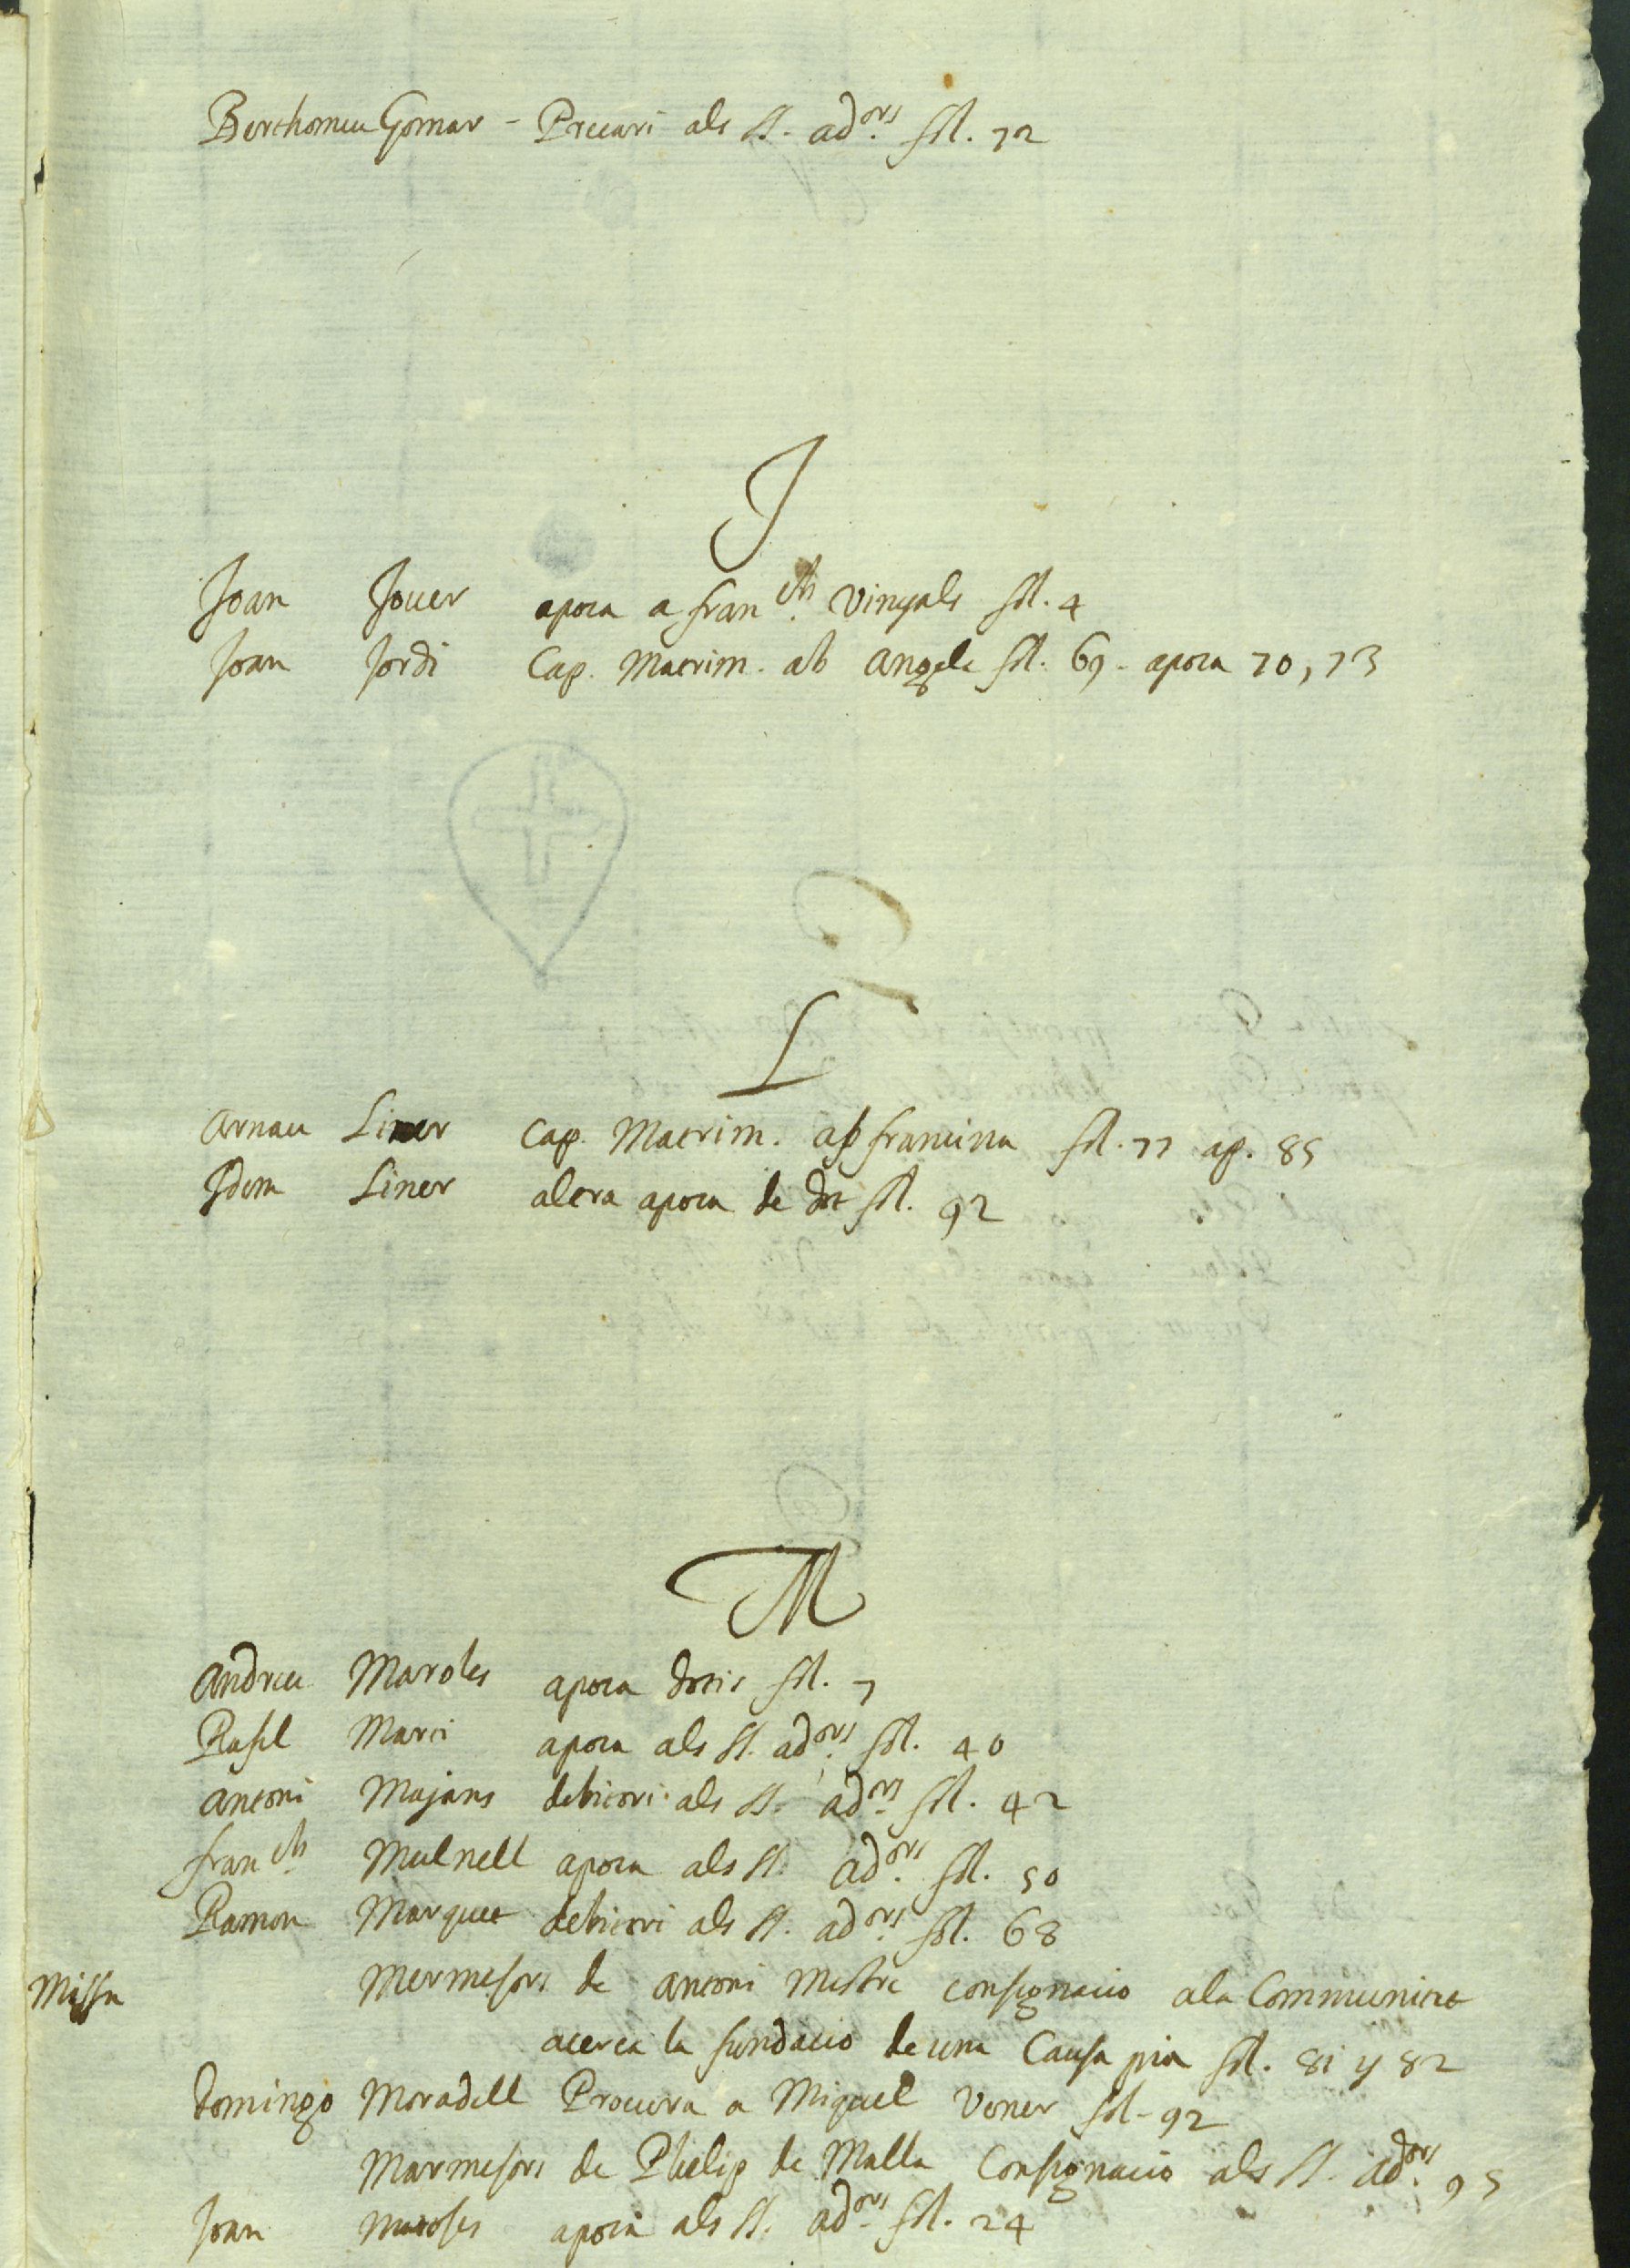 Berthomeu Gomar - Precari als SS. ad.ors fol. 72
J
Joan Jover apoca a fran.ch Vinyals fol. 4
Joan Jordi Cap. Matrim. ab Angela fol. 69 - apoca 70, 73
L
Arnau Liner Cap. Matrim. ab francina fol. 77 ap. 85
Idem Liner altra apoca de dot fol. 92
M
Andreu Maroles apoca dotis fol. 7
Rafel Marti apoca als SS. ad.ors fol. 40
Antoni Majans debitori als SS. ad.ors fol. 42
fran.ch Mulnell apoca als SS. ad.ors fol. 50
Ramon Marquet debitori als SS. ad.ors fol. 68
Missa Mermesors de Antoni Mestre consignacio ala Communitat
acerca la fundacio de una Causa pia fol. 81 y 82
Domingo Moradell Procura a Miquel Voner fol - 92
Marmesors de Phelip de Malla Consignacio als SS. ad.ors 95
Joan apoca als SS. ad.ors fol. 24